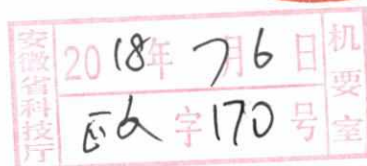 安徽省科技厅
2018年7月6日
字170号
机要室